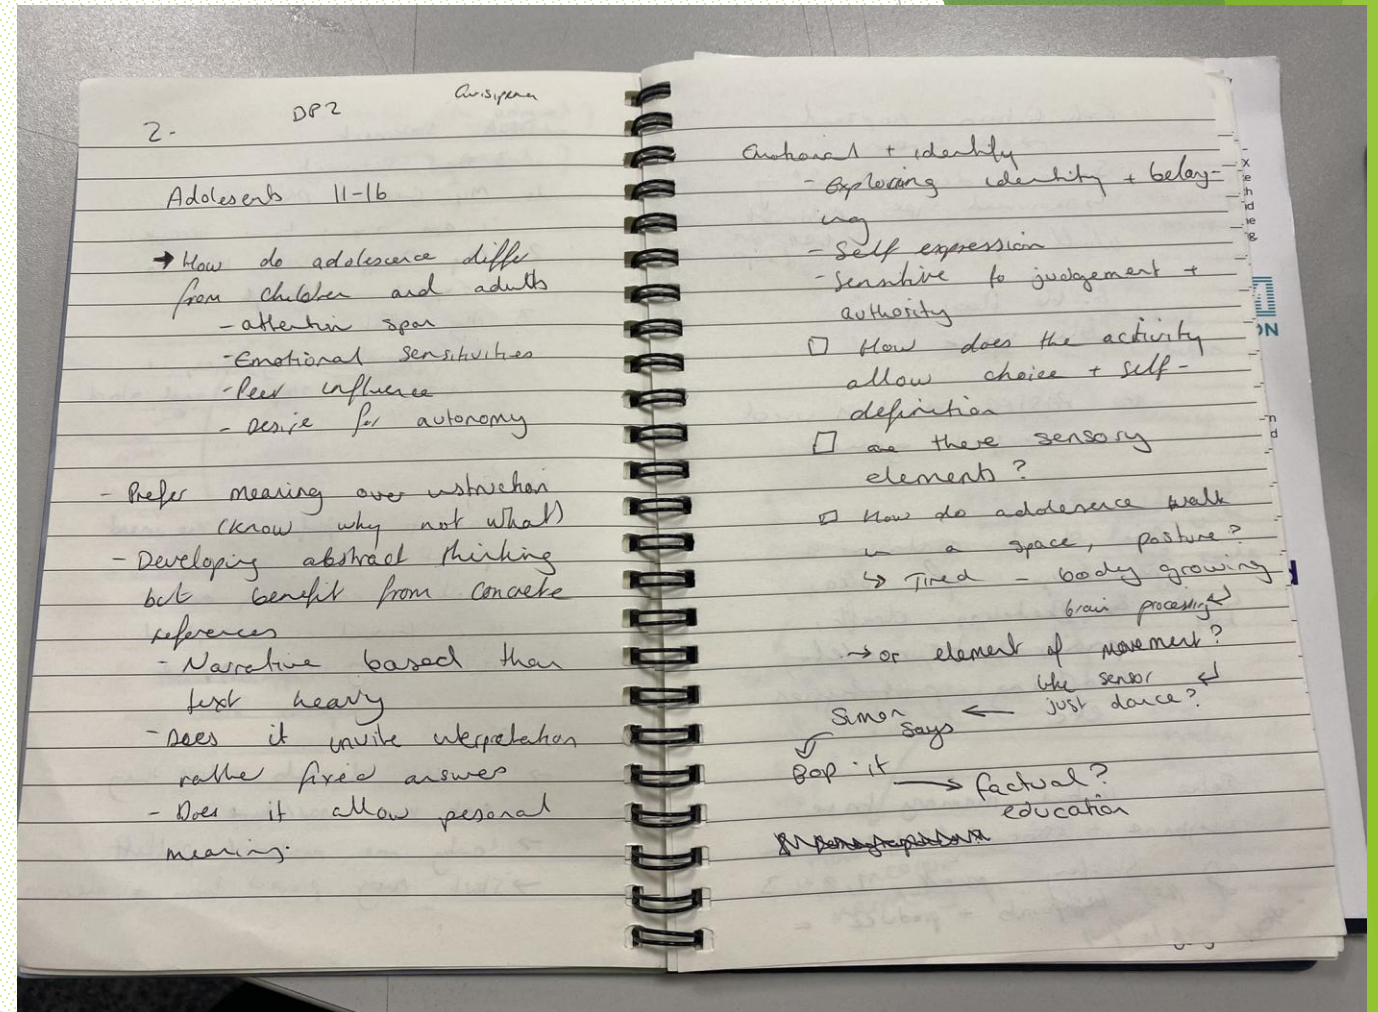 2-
DP2
Adolesents 11-16
→ How do adolescence differ
from children and adults
- attention span
- Emotional sensitivities
- Peer influence
- Desire for autonomy
- Prefer meaning over instruction
(know why not what)
- Developing abstract thinking
but benefit from concrete
references
- Narrative based than
text heavy
- Does it invite interpretation
rather fixed answers
- Does it allow pesonal
meaning.
Emotional + identity
- Exploring identity + belong-
ing
- Self expression
- Sensitive to judgement +
authority
□ How does the activity
allow choice + self-
definition
□ are there sensory
elements?
□ How do adolesence walk
in a space, posture?
↳ Tired - body growing
brain processing ↲
→ or element of movement?
like sensor ↲
just dance?
Simon ←
says
Bop-it → factual?
education